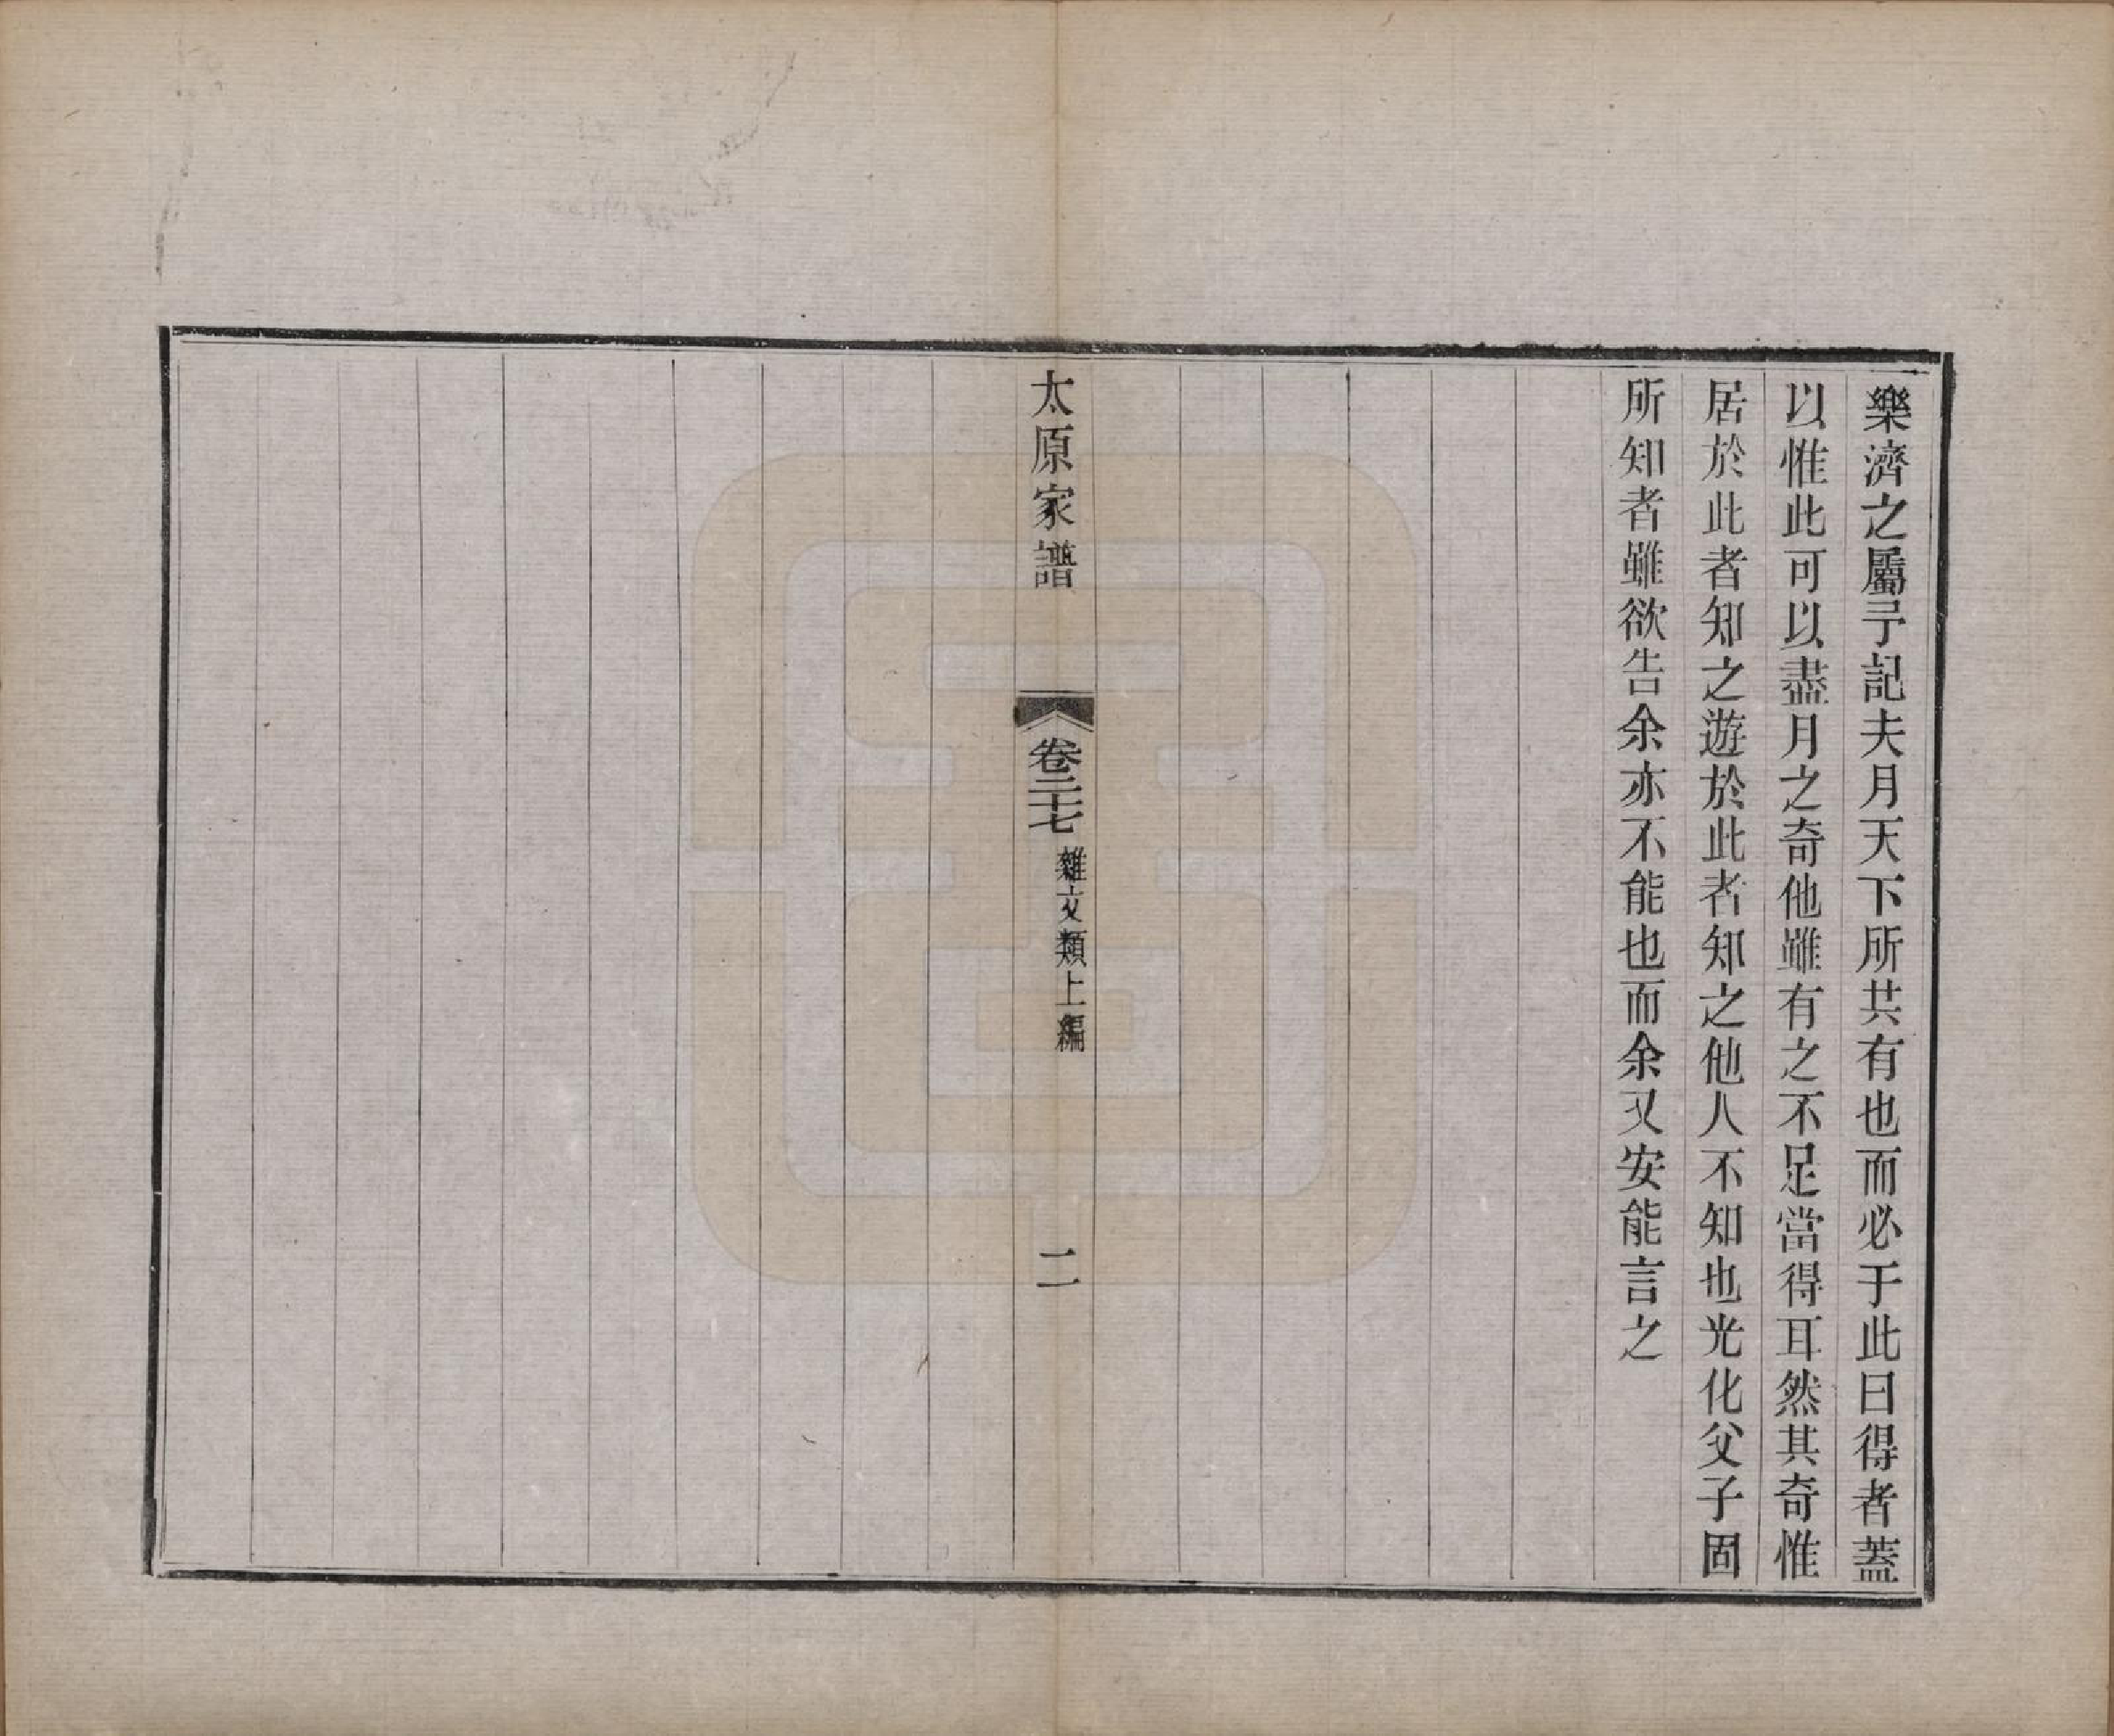 樂濟之屬予記夫月天下所共有也而必于此曰得者蓋
以惟此可以盡月之奇他雖有之不足當得耳然其奇惟
居於此者知之遊於此者知之他人不知也光化父子固
所知者雖欲告余亦不能也而余又安能言之
太原家譜
卷二十七
雜文類上編
二